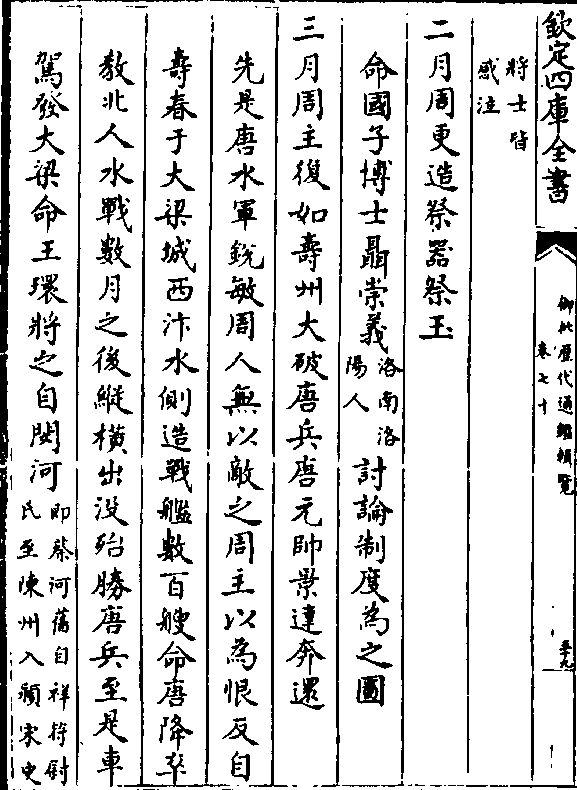 欽定四庫全書
御批歷代通鑑輯覽
卷七十
將士皆
感泣
二月周更造祭器祭玉
命國子博士聶崇義洛南洛
陽人討論制度為之圖
三月周主復如壽州大破唐兵唐元帥景達奔還
先是唐水軍銳敏周人無以敵之周主以為恨反自
壽春于大梁城西汴水側造戰艦數百艘命唐降卒
教北人水戰數月之後縱橫出没殆勝唐兵至是車
駕發大梁命王環將之自閔河即蔡河舊自祥符尉
氏至陳州入潁宋史